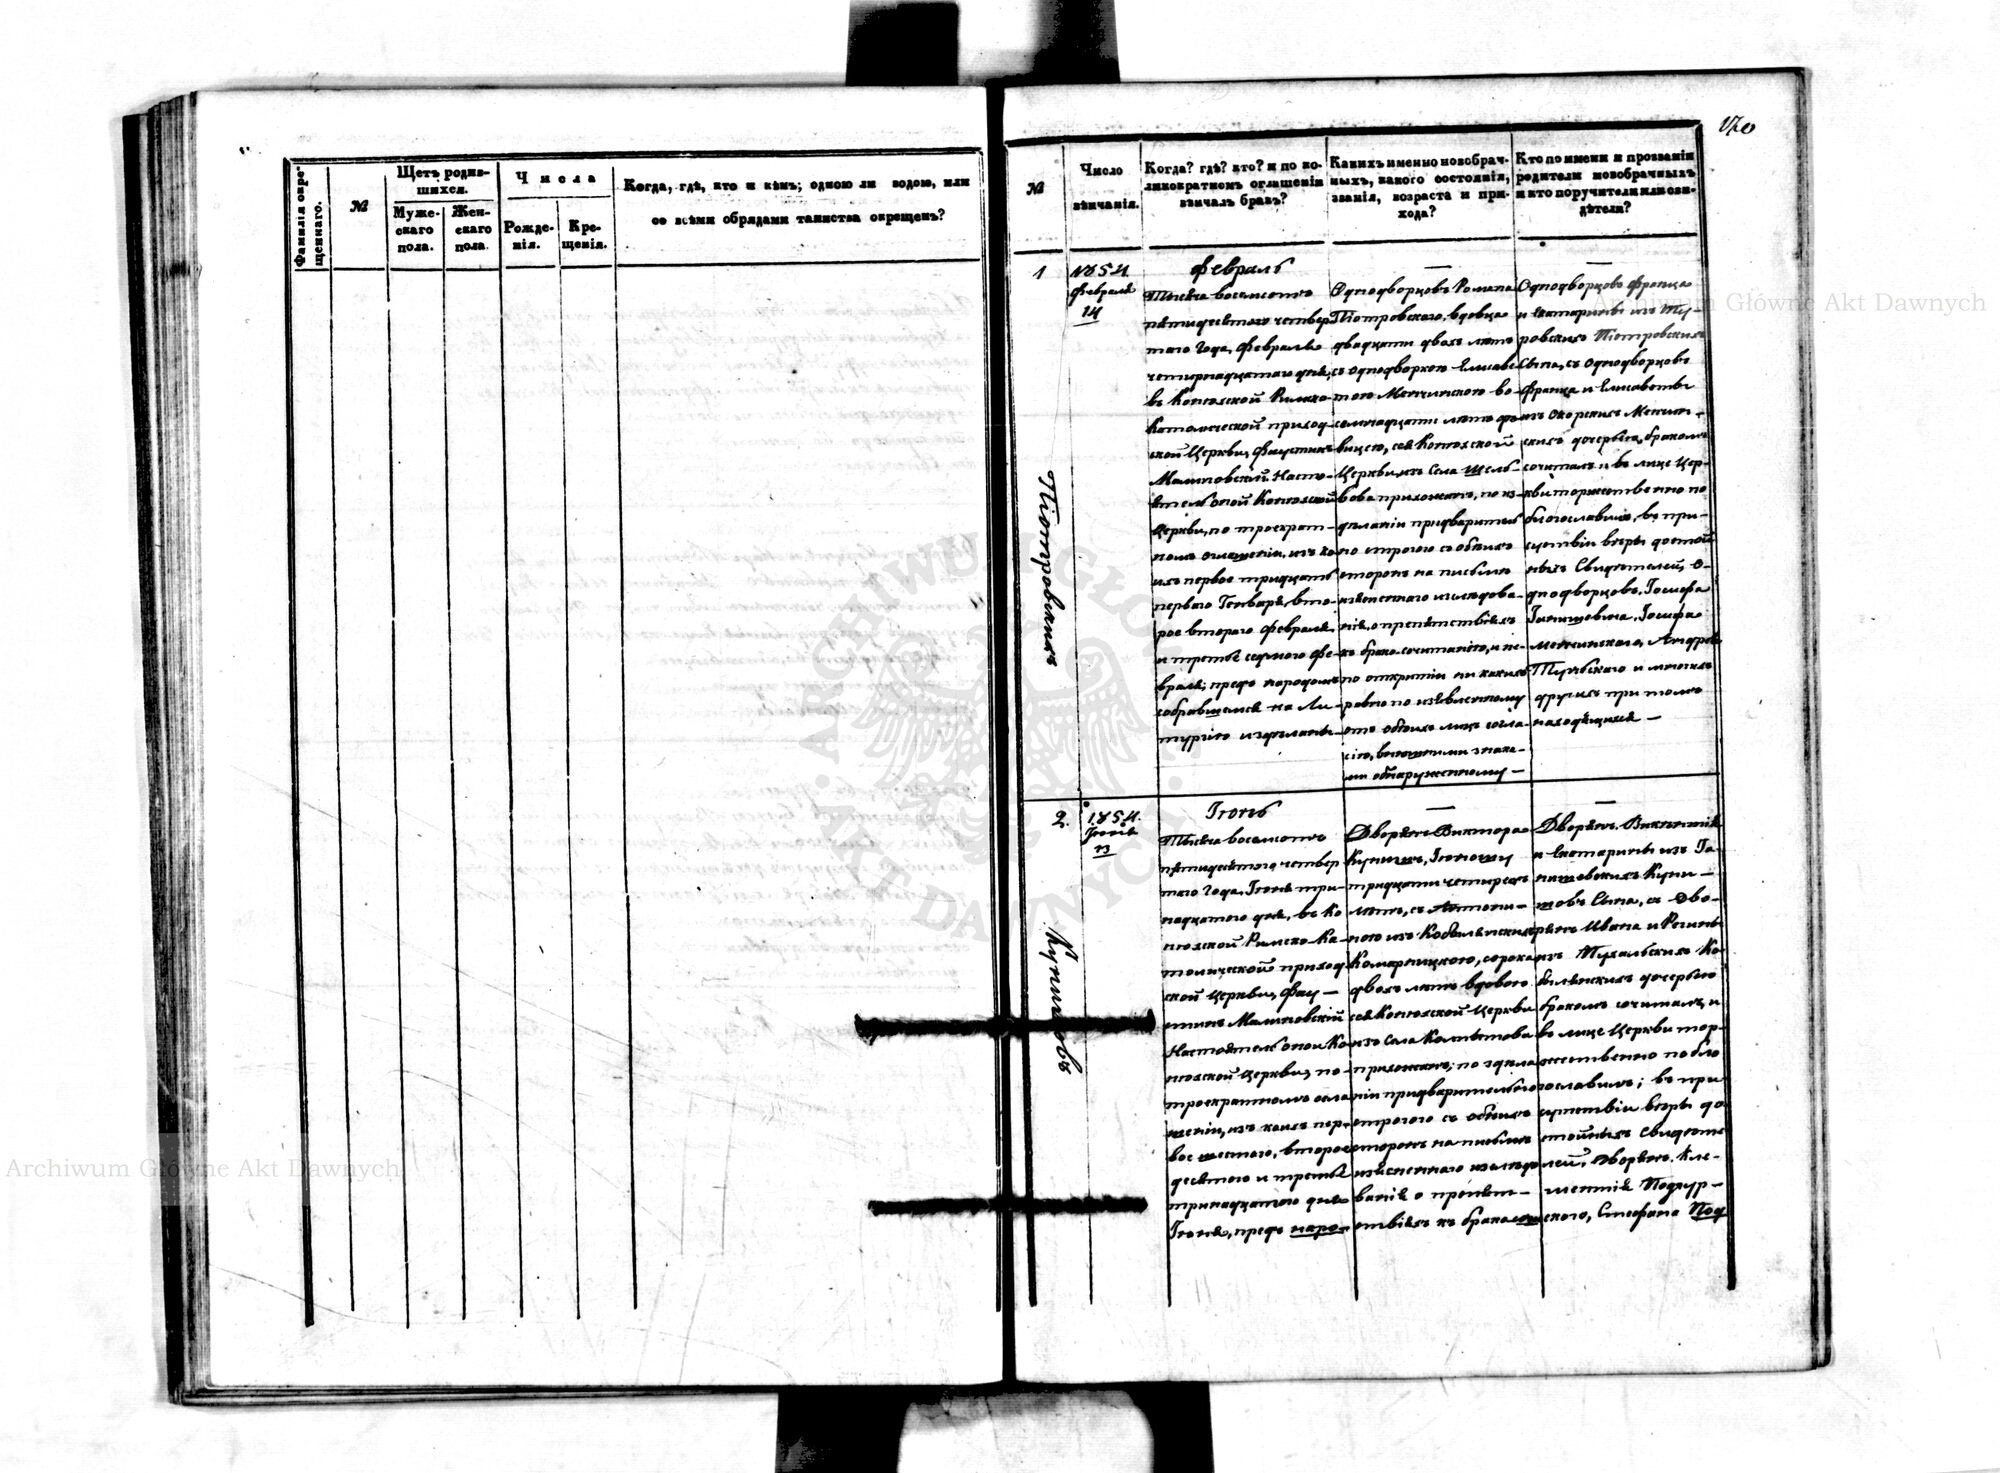 Фамилія окре-
щеннаго.
№
Щетъ родив-
шихся.
Муже-
скаго
пола.
Жен-
скаго
пола.
Числа
Рожде-
нія.
Кре-
щенія.
Когда, гдѣ, кто и кѣмъ; одною ли водою, или
со всѣми обрядами таинства окрещенъ?
170
№
Число
вѣнчанія.
Когда? гдѣ? кто? и по ко-
ликократномъ оглашеніи
вѣнчалъ бракъ?
Какихъ именно новобрач-
ныхъ, какого состоянія,
званія, возраста и при-
хода?
Кто по имени и прозванію
родители новобрачныхъ
и кто поручители или сви-
дѣтели?
1
Піотровскихъ
1854.
Февраля
14
Февраль
Тысяча восемсотъ
пятидесятого четвер
таго Года, Февраля
четырнадцатаго дня,
въ Конской Римско-
Католической приход
ской Церкви, Фаустинъ
Малиновскій Насто-
ятель оной
Церкви, по троекрат-
номъ оглашеніи, изъ ко
ихъ первое тридцать
перваго Генваря, вто-
рое втораго Февраля,
и третье седмого Фе-
враля; предъ народомъ
собравшемся на Ли-
тургію
Однодворцовъ Романа
Піотровскаго, вдовца
двадцати двохъ лѣтъ
съ однодворкою Елисаве
тою Менчинскою во-
семнадцати лѣтъ дѣ-
вицею,
Церкви, изъ Села Шель-
вова прихожанъ, по из-
дѣланіи предварител
но строгого съ обоихъ
сторонъ на письмѣ
изъясненнаго изслѣдова-
нія, о препятствіяхъ
къ бракосочитанію, и не-
по открытіи никакихъ
равно по изъявленному
отъ обоихъ лицъ согла-
сію, внешними знака-
ми обнаруженному —
Однодворцовъ Франца
и Екатарины изъ Ту-
ровскихъ Піотровскихъ
Сына, съ Однодворцовъ
Франца и Елисаветы
изъ Окорскихъ Менчин-
скихъ дочерью, бракомъ
сочиталъ и въ лице Цер-
кви торжественно по
благославилъ, въ при-
сутствіи вѣры достой
ныхъ Свидѣтелей, О-
днодворцовъ, Іосифа
Іосифа
Менчинскаго, Андрея
и многихъ
другихъ при томъ
находящихся —
2.
1854.
Іюня
13
Іюнь
Тысяча восемсотъ
пятидесятого четвер
таго Года, Іюня три-
надцатого дня, въ Ко
Римско Ка-
толической приход
ской Церкви, Фау-
стинъ Малиновскій
Настоятель оной Ко
Церкви, по-
троекратномъ огла
шеніи, изъ коихъ пер-
вое шестого, второе
десятого и третье
тринадцатого дня
Іюня, предъ наро-
Дворянъ Виктора
тридцати четырехъ
лѣтъ, съ Антони-
ною изъ Кобылянскихъ
Комарницкою, сорока
двохъ лѣтъ вдовою
Церкви
изъ Села
прихожанъ; по здѣла
ніи предварительно
строгого съ обоихъ
сторонъ на письмѣ
изъясненнаго изслѣдо
ванія о препят-
ствіяхъ къ бракосо
Дворянъ Викентія
и Екатарины изъ Га-
товъ Сына, съ Дво-
рянъ Ивана и Регины
изъ Ко-
былянскихъ дочерью
бракомъ сочиталъ, и
въ лице Церкви тор-
жественно побла
гославилъ; въ при
сутствіи вѣры до
стойныхъ Свидѣте
лей, Дворянъ Кле-
ментія
скаго, Стефана Под
Archiwum Główne Akt Dawnych
Archiwum Główne Akt Dawnych
ARCHIWUM GŁÓWNE AKT DAWNYCH